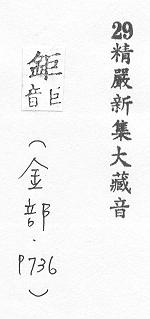 29精嚴新集大藏音
鉅
音巨
(金部.P736)